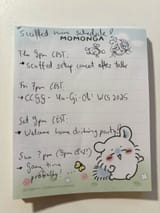 Scuffed home schedule!
MOMONGA
Thu 9pm CEST:
↳ Scuffed setup comet after talk
Fri 7pm CEST:
↳ CCGG - Yu-Gi-Oh! WCS 2025
Sat 9pm CEST:
↳ Welcome home drinking party!
Sun ? pm (9pm CEST?)
↳ time
probably!